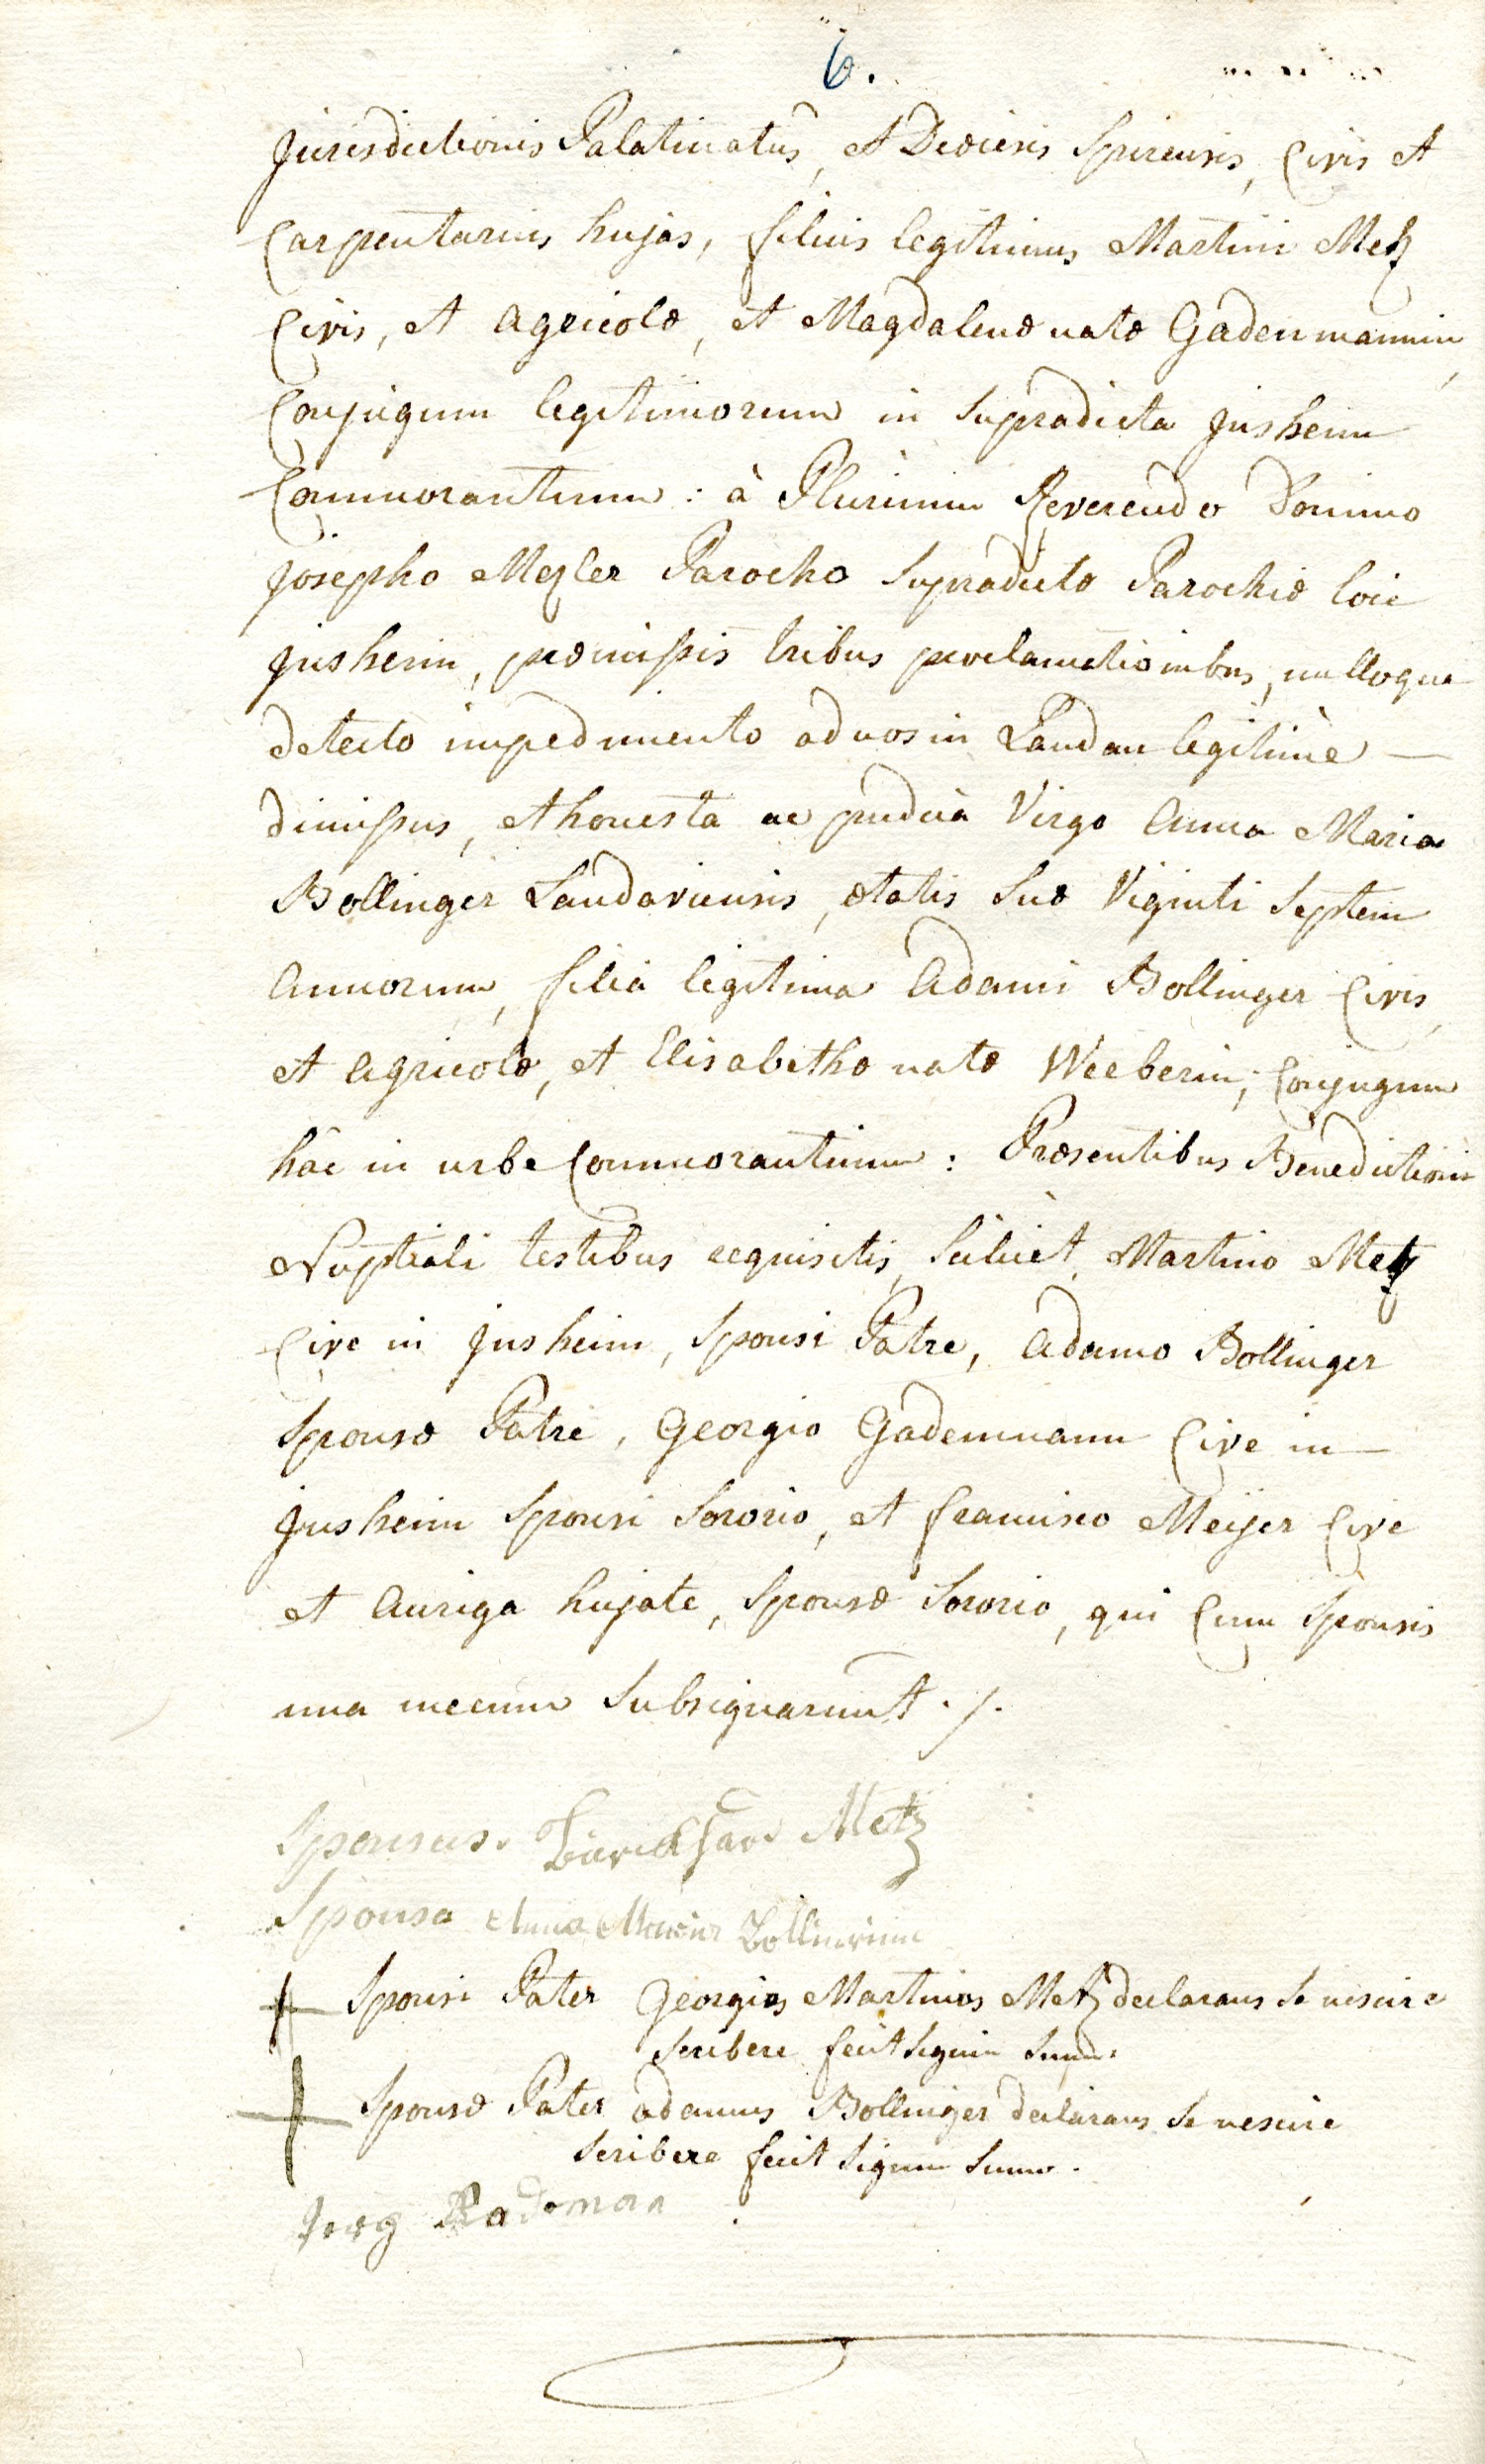 6.
Jurisdictionis Palatinatus, et Diœcisis Spirensis, Civis et
Carpentarius hujas, filius legitimus Martini Metz
Civis, et agricolæ, et Magdalenæ natæ Gadenmannin,
Conjugum legitimorum in Supradicta Jnsheim
Commorantium : à Plurimum Reverendo Domino
Josepho Mezler Parocho Supradictæ Parochiæ loci
Jnsheim, præmissis tribus proclamationibus, nulloque
detecto impedimento ad nos in Landau legitimè —
dimissus, et honesta ac pudica Virgo Anna Maria
Bollinger Landaviensis, ætatis Suæ Viginti Septem
Annorum, filia legitima Adami Bollinger Civis,
et Agricolæ, et Elisabethæ natæ Weeberin, Conjugum
hâc in urbe Commorantium : Præsentibus Benedictioni
Nuptiali testibus requisitis, Scilicet, Martino Metz
Cive in Jnsheim, Sponsi Patre, Adamo Bollinger
Sponsæ Patre, Georgio Gademmann Cive in —
Jnsheim Sponsi Sororio, et francisco Meijer Cive
et Auriga hujate, Sponsæ Sororio, qui Cum Sponsis
una mecum Subsignarunt ./.
Sponsus. Metz
Sponsa Anna Maria Bollinerinn
Sponsi Pater Georgius Martinus Metz declarans Se nescire
Scribere fecit Signum Suum.
Sponsæ Pater adamus Bollinger declarans Se nescire
Scribere fecit Signum Suum.
Jerg Gadoman